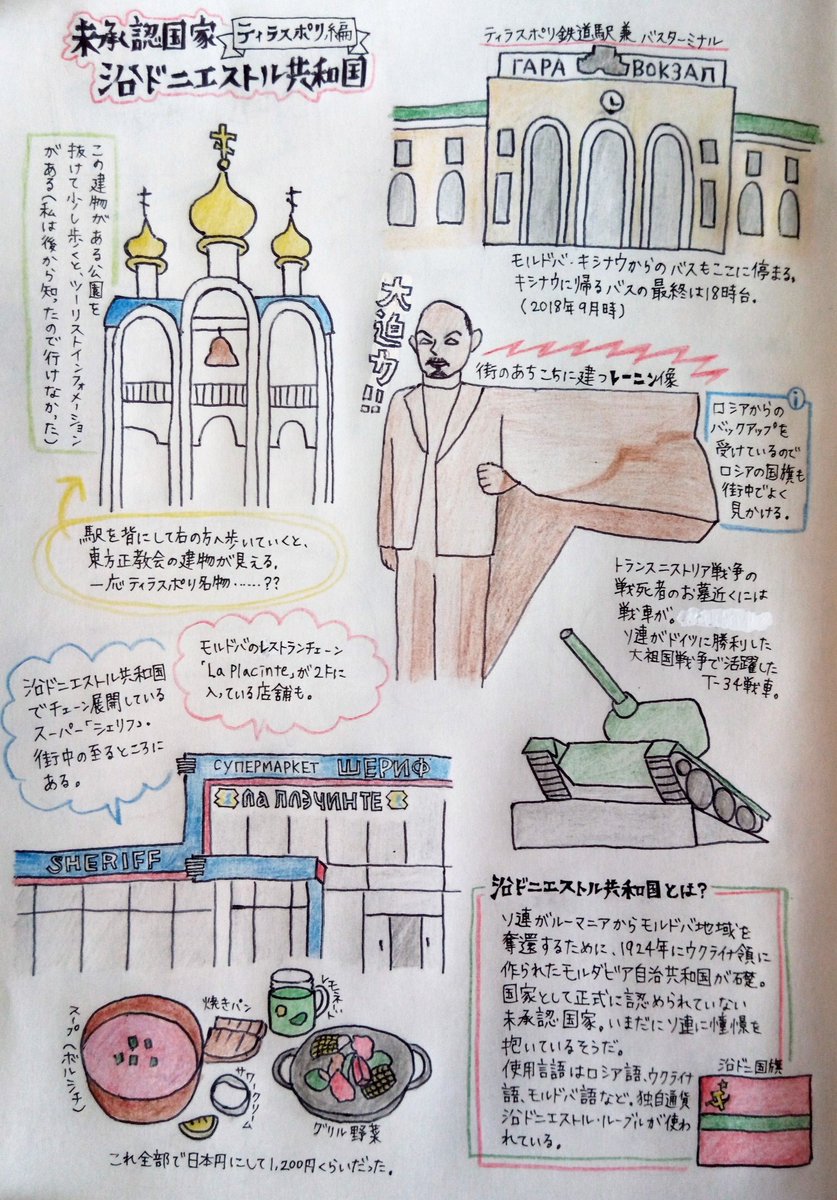 未承認国家
ティラスポリ編
沿ドニエストル共和国
ティラスポリ鉄道駅 兼 バスターミナル
ГАРА ВОКЗАЛ
モルドバ・キシナウからのバスもここに停まる。
キシナウに帰るバスの最終は18時台。
(2018年9月時)
この建物がある公園を
抜けて少し歩くと、ツーリストインフォメーション
がある(私は後から知ったので行けなかった)
駅を背にして右の方へ歩いていくと、
東方正教会の建物が見える。
一応ティラスポリ名物……??
大迫力!!
街のあちこちに建つレーニン像
i
ロシアからの
バックアップを
受けているので
ロシアの国旗も
街中でよく
見かける。
トランスニストリア戦争の
戦死者のお墓近くには
戦車が。
ソ連がドイツに勝利した
大祖国戦争で活躍した
T-34戦車。
モルドバのレストランチェーン
「La Placinte」が2Fに
入っている店舗も。
沿ドニエストル共和国
でチェーン展開している
スーパー「シェリフ」。
街中の至るところに
ある。
СУПЕРМАРКЕТ ШЕРИФ
ЛА ПЛЭЧИНТЕ
SHERIFF
スープ(ボルシチ)
焼きパン
レモネード
サワークリーム
グリル野菜
これ全部で日本円にして1,200円くらいだった。
沿ドニエストル共和国とは?
ソ連がルーマニアからモルドバ地域を
奪還するために、1924年にウクライナ領に
作られたモルダビア自治共和国が礎。
国家として正式に認められていない
未承認国家。いまだにソ連に憧憬を
抱いているそうだ。
使用言語はロシア語、ウクライナ
語、モルドバ語など。独自通貨
沿ドニエストル・ルーブルが使わ
れている。
沿ドニ国旗